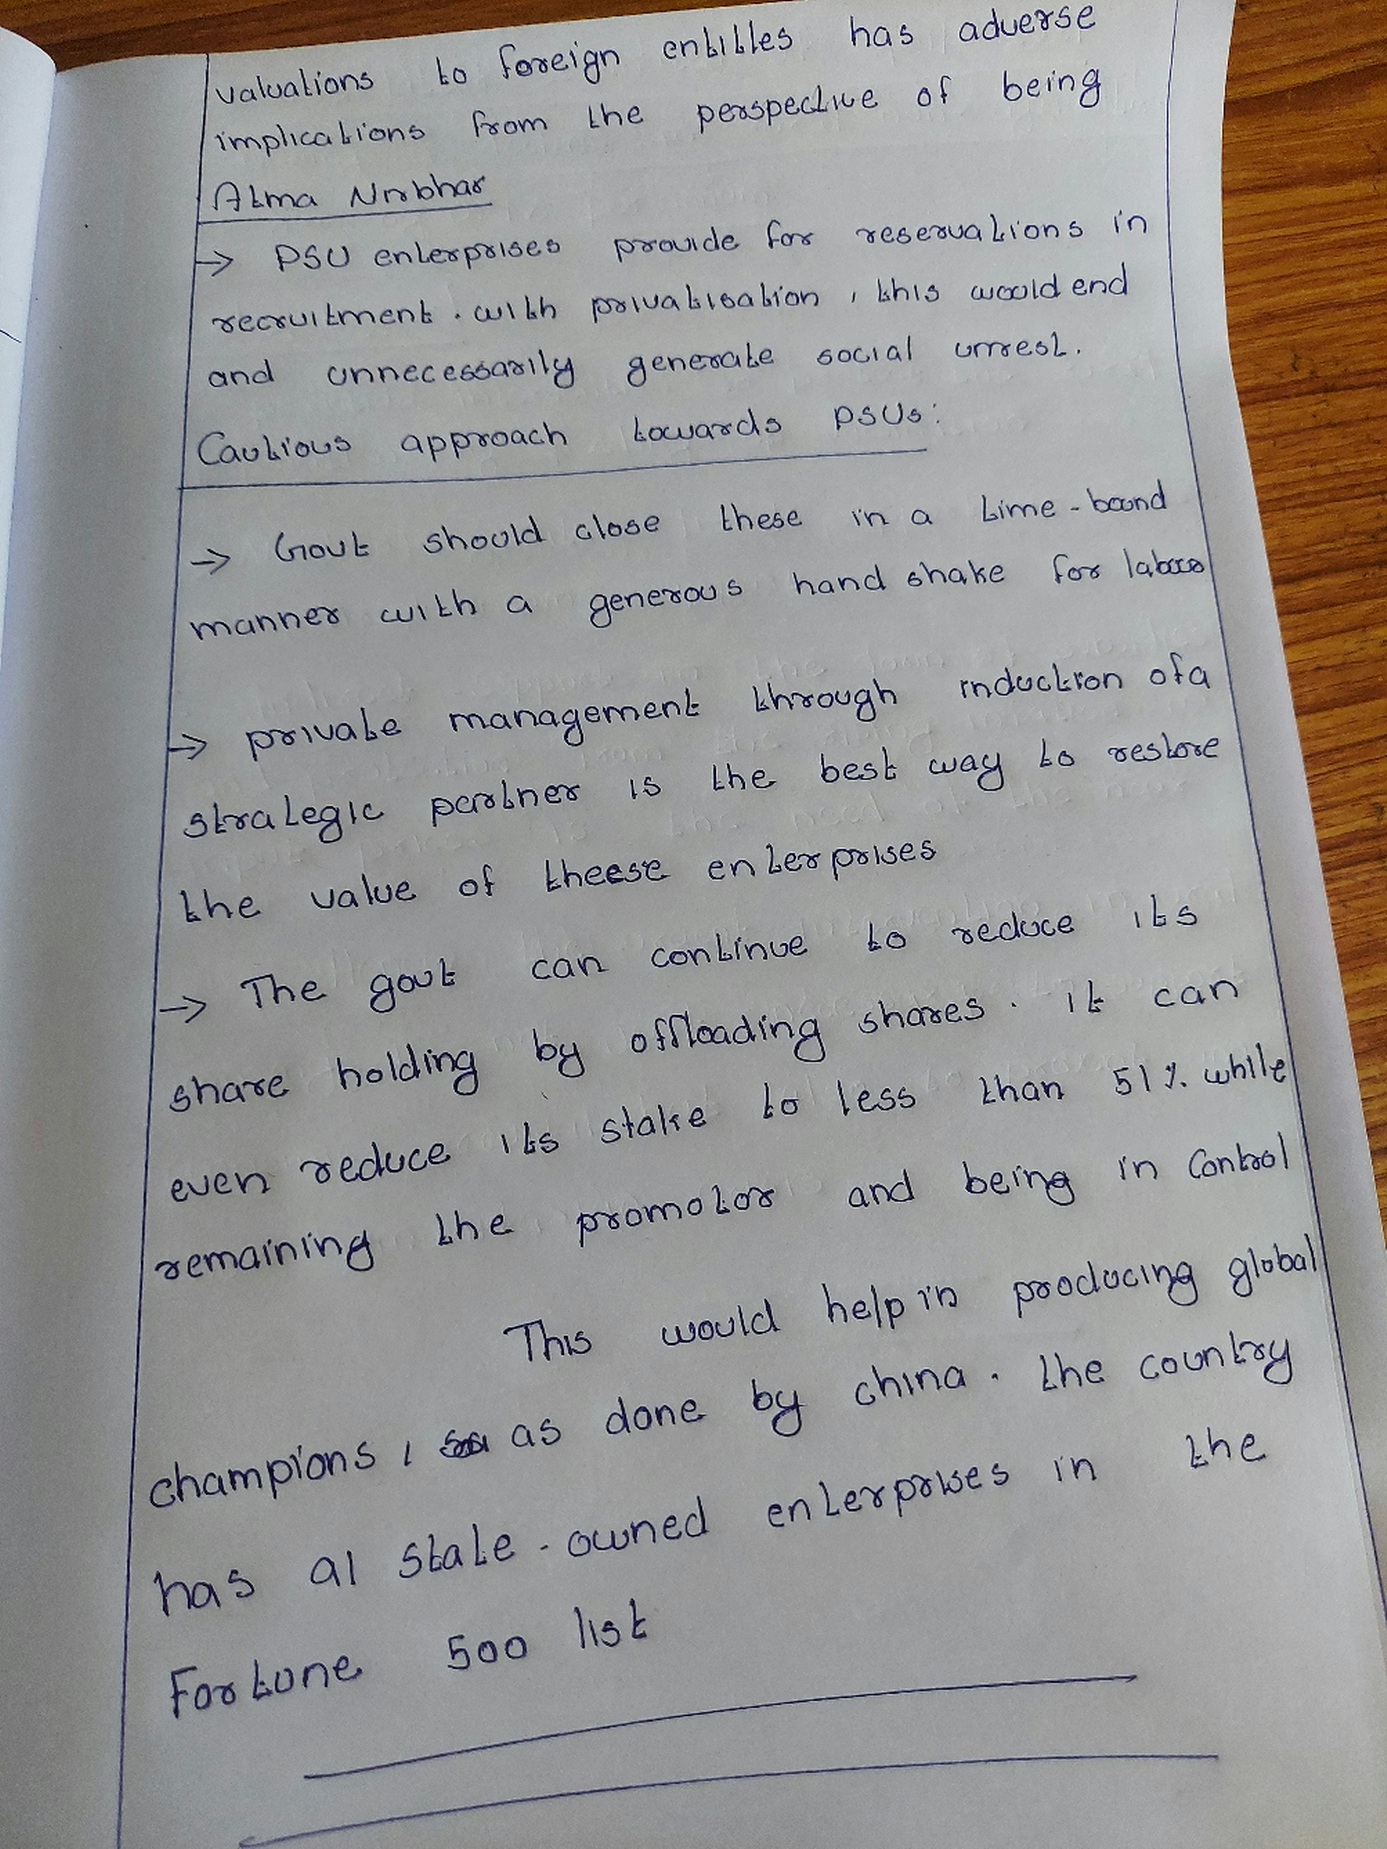 valuations to foreign entitles has adverse
implications from the perspective of being
Atma Nirbhar
→ PSU enterprises provide for reservations in
recruitment. with privatisation, this would end
and unnecessarily generate social unrest.
Cautious approach towards PSUs:
→ Govt should close these in a time-bound
manner with a generous hand shake for labour
→ private management through induction of a
strategic partner is the best way to restore
the value of theese enterprises
→ The govt can continue to reduce its
share holding by offloading shares. it can
even reduce its stake to less than 51% while
remaining the promotor and being in control
This would help in producing global
champions, as done by china. the country
has 91 state-owned enterprises in the
Fortune 500 list